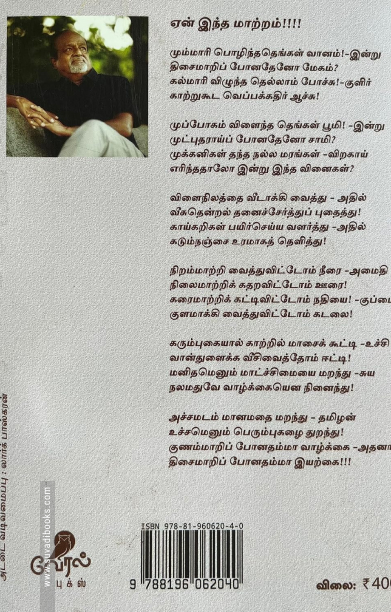 ஏன் இந்த மாற்றம்!!!!
மும்மாரி பொழிந்ததெங்கள் வானம்!-இன்று
திசைமாறிப் போனதேனோ மேகம்?
கல்மாரி விழுந்த தெல்லாம் போச்சு!-குளிர்
காற்றுகூட வெப்பக்கதிர் ஆச்சு!
முப்போகம் விளைந்த தெங்கள் பூமி! -இன்று
முட்புதராய்ப் போனதேனோ சாமி?
முக்கனிகள் தந்த நல்ல மரங்கள் -விறகாய்
எரிந்ததாலோ இன்று இந்த வினைகள்?
விளைநிலத்தை வீடாக்கி வைத்து - அதில்
வீசுதென்றல் தனைச்சேர்த்துப் புதைத்து!
காய்கறிகள் பயிர்செய்ய வளர்த்து -அதில்
கடும்நஞ்சை உரமாகத் தெளித்து!
நிறம்மாற்றி வைத்துவிட்டோம் நீரை -அமைதி
நிலைமாற்றிக் கதறவிட்டோம் ஊரை!
கரைமாற்றிக் கட்டிவிட்டோம் நதியை! -குப்பை
குளமாக்கி வைத்துவிட்டோம் கடலை!
கரும்புகையால் காற்றில் மாசைக் கூட்டி -உச்சி
வான்துளைக்க வீசிவைத்தோம் ஈட்டி!
மனிதமெனும் மாட்ச்சிமையை மறந்து -சுய
நலமதுவே வாழ்க்கையென நினைந்து!
அச்சமடம் மானமதை மறந்து - தமிழன்
உச்சமெனும் பெரும்புகழை துறந்து!
குணம்மாறிப் போனதம்மா வாழ்க்கை -அதனா
திசைமாறிப் போனதம்மா இயற்கை!!!
அட்டை வடிவமைப்பு : லார்க் பாஸ்கரன்
புக்ஸ்
ISBN 978-81-960620-4-0
9 788196 062040
விலை: ₹ 400